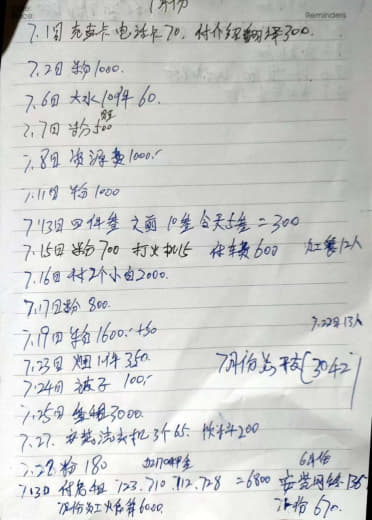 Reminders
7月份
7.1日 充查卡电话卡70. 付介绍翻译300.
7.2日 粉1000.
7.6日 大水10件 60.
7.7日 粉500
7.8日 资源费1000.-
7.11日 粉1000
7.13日 四件套 之前10套今天5套=300
7.15日 粉700 打火机15 付车费600 员工餐12人
7.16日 付2个小白2000.
7.17日粉 800.
7.19日 粉1600.+50
7.22日 13人
7.23日 烟1件 350.
7月份总支[3042
7.24日 被子 100.-
7.25日 房租3000.
7.27. 安装洗衣机3个65. 饮料200
7.28. 粉180
6月份
7.30 付房租 723.710.712.728 =6800 安装网络135
7月份员工火食费6000.
67人